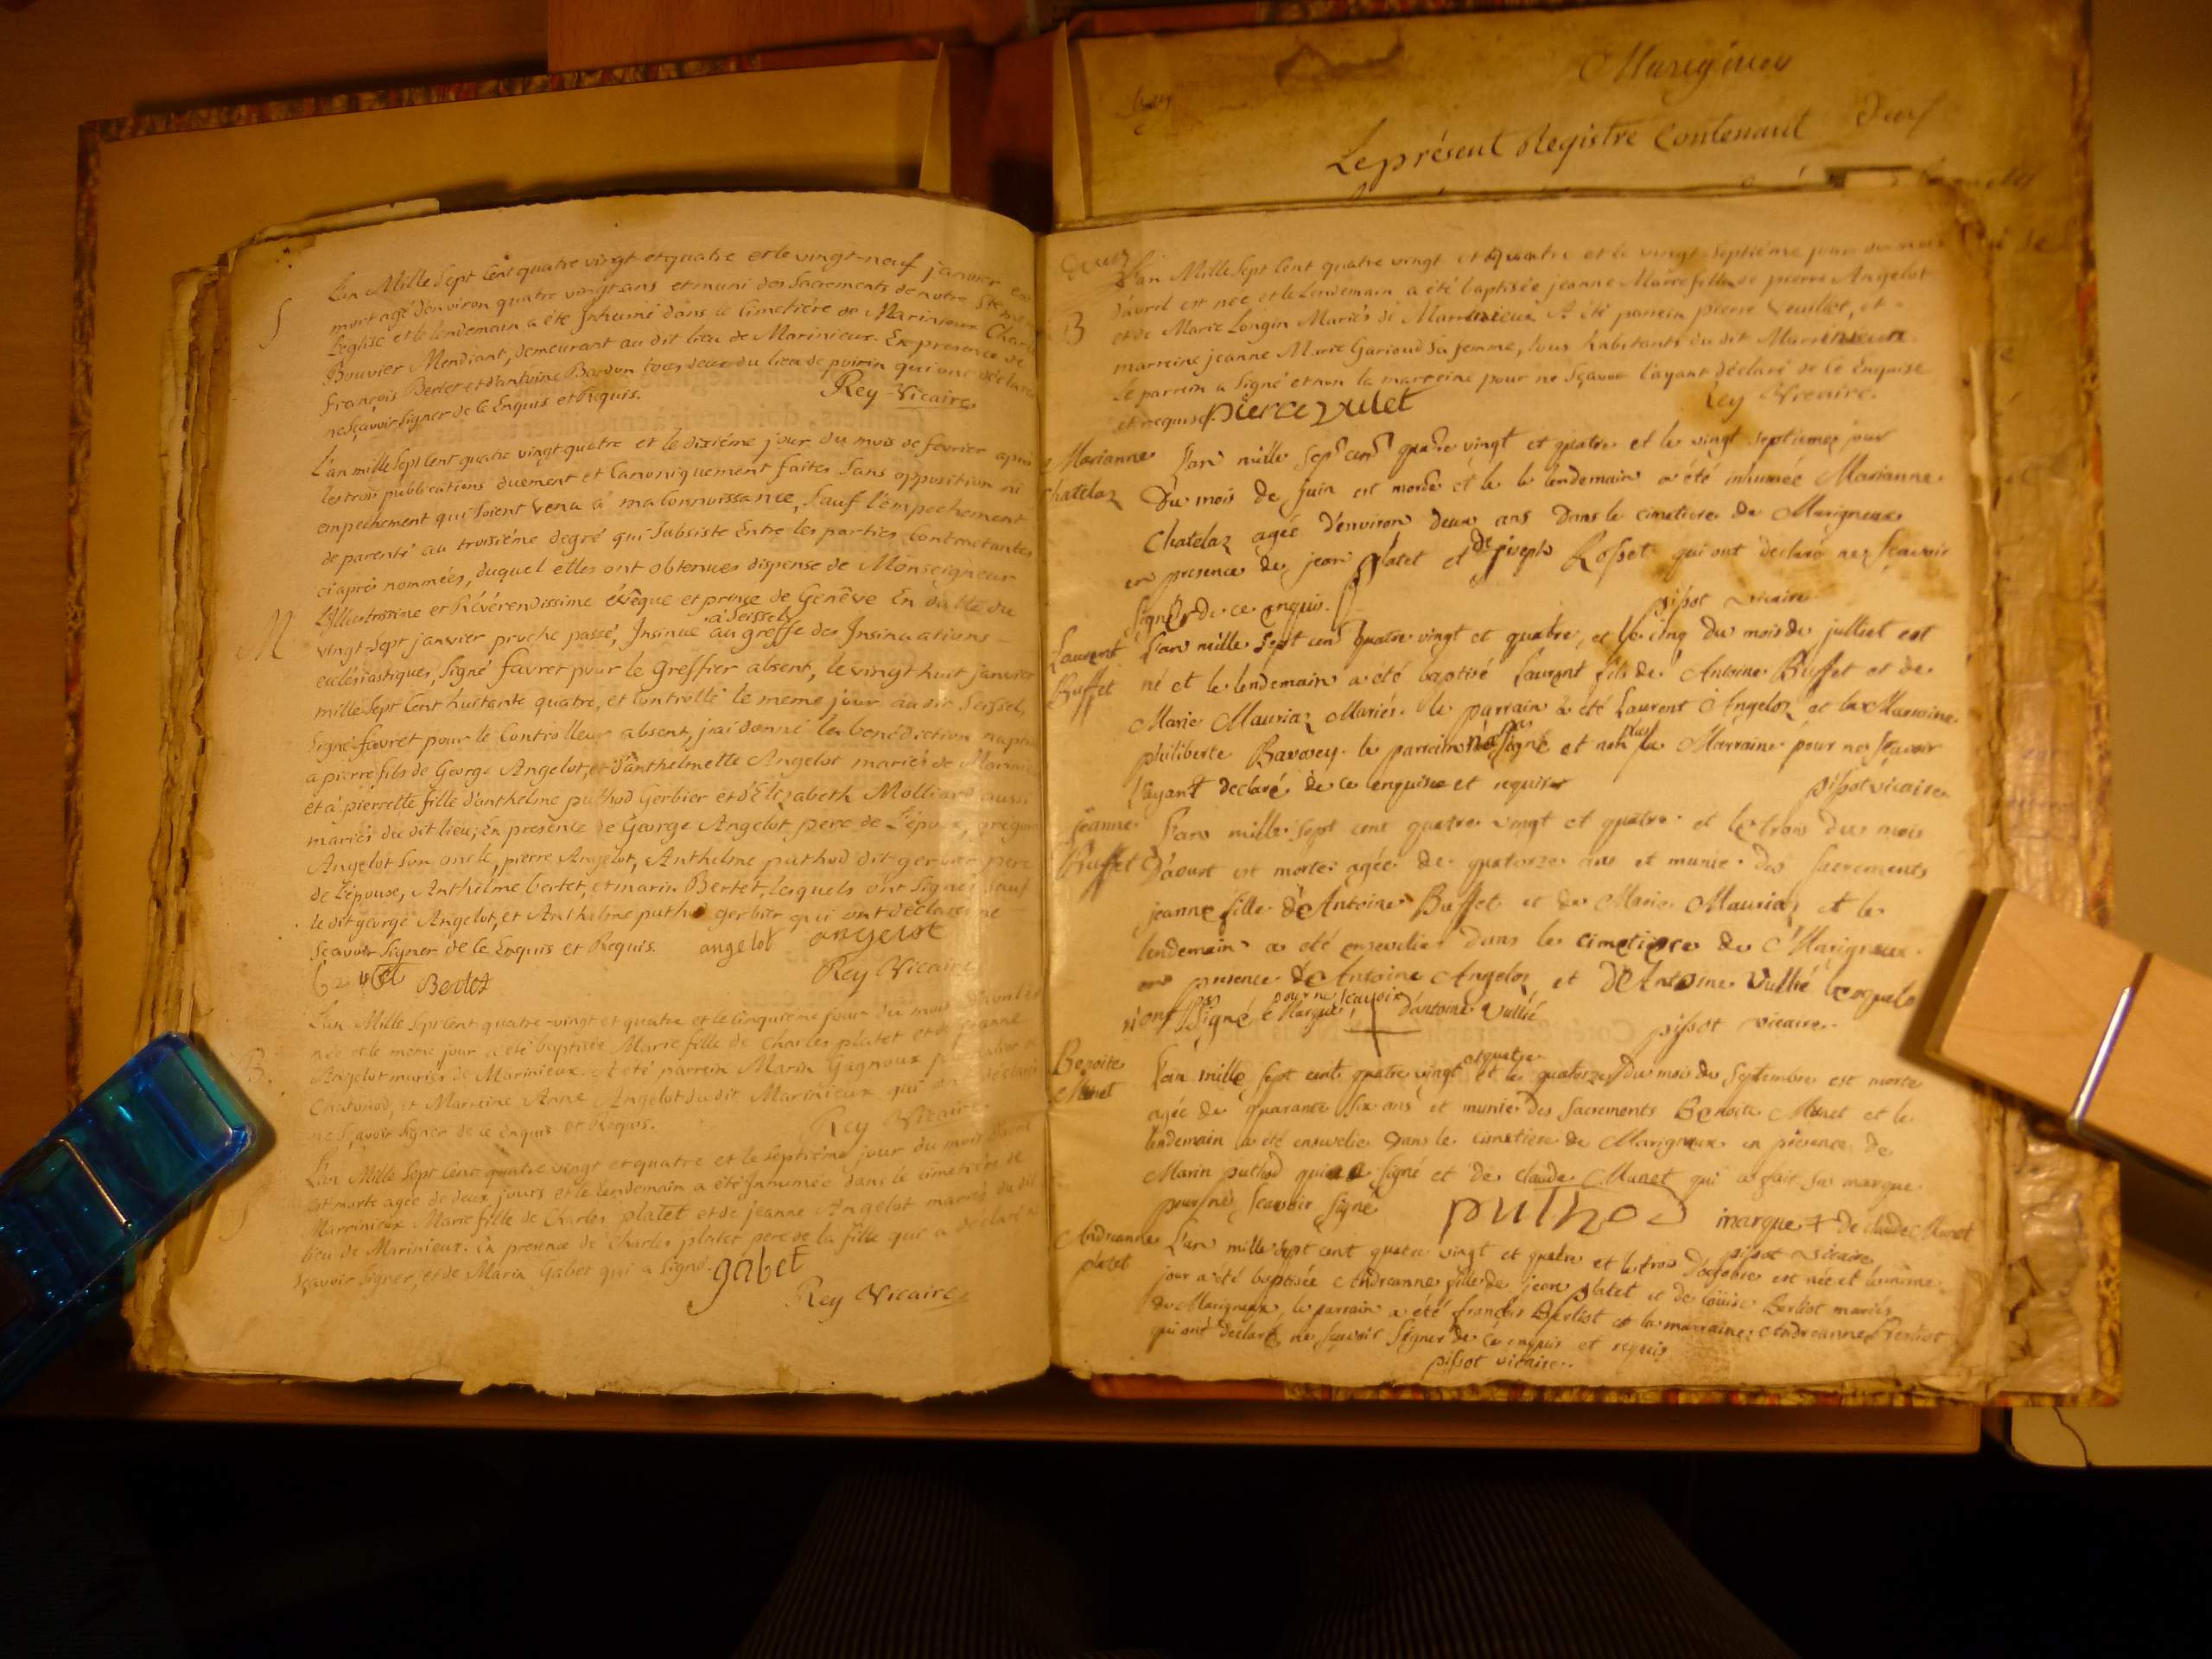 S
L'an Mille Sept Cent quatre vingt et quatre et le vingt-neuf janvier est
mort agé d'environ quatre vingt ans et muni des Sacrements de notre Ste mère
L'église et le lendemain a été Inhumé dans le Cimetière de Marinieux Charle
Bouvier Mendiant, demeurant au dit lieu de Marinieux. En presence de
françois Berlet et d'antoine Bardon tous deux du lieu de poirin qui ont déclaré
ne sçavoir signer de ce Enquis et Requis. Rey Vicaire
L'an mille Sept Cent quatre vingt quatre et le dixiéme jour du mois de fevrier après
les trois publications duement et Canoniquement faites Sans opposition ni
empechement qui Soient venu à ma Connoissance, Sauf l'empechement
de parenté au troisiéme degré qui Subsiste Entre les parties Contractantes
ci après nommées, duquel elles ont obtenues dispense de Monseigneur
M
L'Illustrissime et Révérendissime évêque et prince de Genêve En datte du
à Seissel
vingt-Sept janvier proche passé, Insinué au greffe des Insinuations
ecclésiastiques, Signé favret pour le Greffier absent, le vingt huit janvier
mille Sept Cent huitante quatre, et Controllé le meme jour au dit Seissel,
Signé favret pour le Controlleur absent, j'ai donné la benédiction
a pierre fils de George Angelot, et d'anthelmette Angelot mariés de
et à pierrette fille d'anthelme puthod Gerbier et d'Elizabeth Molliard aussi
mariés du dit lieu; En presence de George Angelot pere de l'époux,
Angelot Son oncle, pierre Angelot, Anthelme puthod dit gerbier pere
de l'épouse, Anthelme bertet, et marin Bertet, lesquels ont Signés Sauf
le dit george Angelot, et Anthelme puthod gerbier qui ont déclarés ne
Sçavoir Signer de ce Enquis et Requis. angelot angelot
Bertet Rey Vicaire
L'an Mille Sept Cent quatre-vingt et quatre et le Cinquieme jour du mois d'avril est
née et le meme jour a été baptisée Marie fille de Charles platet et de jeanne
B.
Angelot mariés de Marinieux. A été parrein Marin Gagnoux
Chatonod, et Marreine Anne Angelot du dit Marinieux qui ont déclaré
ne Sçavoir Signer de ce Enquis et Requis. Rey Vicaire
L'an Mille Sept Cent quatre vingt et quatre et le Septiéme jour du mois d'avril
S
est morte agée de deux jours et le lendemain a été Inhumée dans le Cimetière de
Marinieux Marie fille de Charles platet et de jeanne Angelot mariés du dit
lieu de Marinieux. En presence de Charles platet pere de la fille qui a déclaré ne
sçavoir Signer, et de Marin Gabet qui a Signé. gabet
Rey Vicaire
Marigneu
Le présent Registre Contenant
L'an Mille Sept Cent quatre vingt et quatre et le vingt Septiéme jour du mois
d'avril est née et le Lendemain a été baptisée jeanne Marie fille de pierre Angelot
B
et de Marie Longin Mariés de Marinieux A été parrein pierre Veuillet, et
marreine jeanne Marie Garioud Sa femme, tous habitants du dit Marinieux.
le parrein a Signé et non la marreine pour ne Sçavoir l'ayant déclaré de ce Enquise
et requise. pierre vulet Rey Vicaire.
Marianne
Chatelaz
L'an mille Sept cent quatre vingt et quatre et le vingt septieme jour
Du mois de Juin est morte et le lendemain a été inhumée Marianne
Chatelaz agée d'environ deux ans Dans le cimetiere de Marigneux
en presence de jean platet et de joseph Rosset qui ont declaré ne Sçavoir
Signer de ce enquis. pissot vicaire
Laurent
Buffet
L'an mille Sept cent quatre vingt et quatre, et le cinq du mois de julliet est
né et le lendemain a été baptisé Laurent fils de Antoine Buffet et de
Marie Mauriaz Mariés. le parrain a été Laurent Angeloz et la Marraine
philiberte Bavosey. le parrain n'a pas Signé et non plus la Marraine pour ne Sçavoir
l'ayant declaré de ce enquis et requis pissot vicaire
jeanne
Buffet
L'an mille Sept cent quatre vingt et quatre et le trois du mois
D'aoust est morte agée de quatorze ans et munie des sacrements
jeanne fille de Antoine Buffet et de Marie Mauriaz et le
lendemain a été ensevelie Dans le cimetiere de Marigneux
en presence de Antoine Angeloz et D'Antoine Vullié lesquels
n'ont pas Signé pour ne Sçavoir Marque + d'antoine Vullié
pissot vicaire.
Benoite
Munet
et quatre
L'an mille Sept cent quatre vingt et le quatorze Du mois de Septembre est morte
agée de quarante Six ans et munie Des Sacrements Benoite Munet et le
lendemain a été ensevelie Dans le cimetiere de Marigneux en présence de
Marin puthod qui a Signé et de claude Munet qui a fait sa marque
pour ne Sçavoir Signé puthod marque + De claude Munet
pissot vicaire
Andreanne
platet
L'an mille Sept cent quatre vingt et quatre et le trois D'octobre est née et le même
jour a été baptisée Andreanne fille de jean platet et de Louise Berliot mariés
de Marigneux, le parrain a été françois Berliot et la marraine Andreanne Berliot
qui ont declaré ne Sçavoir Signer de ce enquis et requis
pissot vicaire.